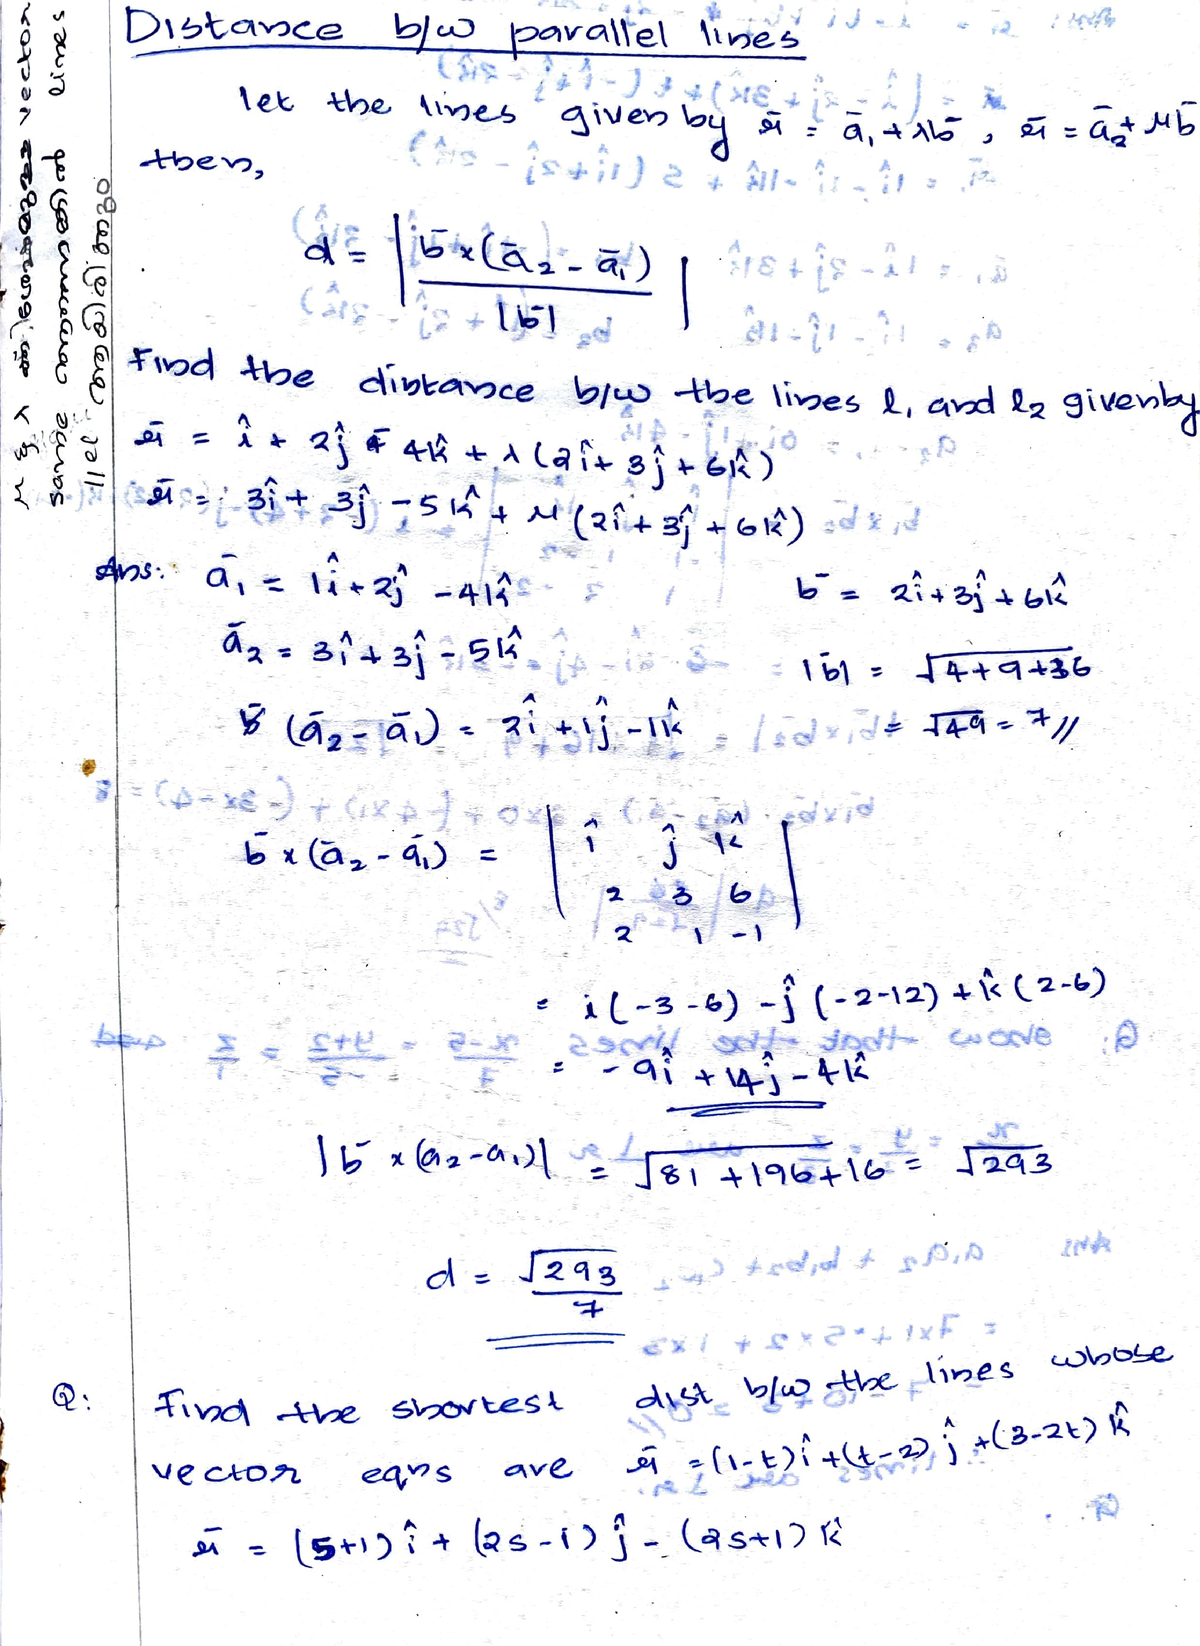 Distance b/w parallel lines
let the lines given by r̄ = ā₁ + λb̄ , r̄ = ā₂ + μb̄
then,
d = | b̄ × (ā₂ - ā₁) / |b̄| |
Find the distance b/w the lines l₁ and l₂ given by
r̄ = î + 2ĵ - 4k̂ + λ (2î + 3ĵ + 6k̂)
r̄ = 3î + 3ĵ - 5k̂ + μ (2î + 3ĵ + 6k̂)
Ans: ā₁ = 1î + 2ĵ - 4k̂ b̄ = 2î + 3ĵ + 6k̂
ā₂ = 3î + 3ĵ - 5k̂ |b̄| = √4+9+36
(ā₂ - ā₁) = 2î + 1ĵ - 1k̂ = √49 = 7 //
b̄ × (ā₂ - ā₁) = | î ĵ k̂
2 3 6
2 1 -1 |
= i(-3-6) - ĵ(-2-12) + k̂(2-6)
= -9î + 14ĵ - 4k̂
|b̄ × (a₂-a₁)| = √81+196+16 = √293
d = √293 / 7
Q: Find the shortest dist b/w the lines whose
vector eqns are r̄ = (1-t)î + (t-2)ĵ + (3-2t)k̂
r̄ = (s+1)î + (2s-1)ĵ - (2s+1)k̂